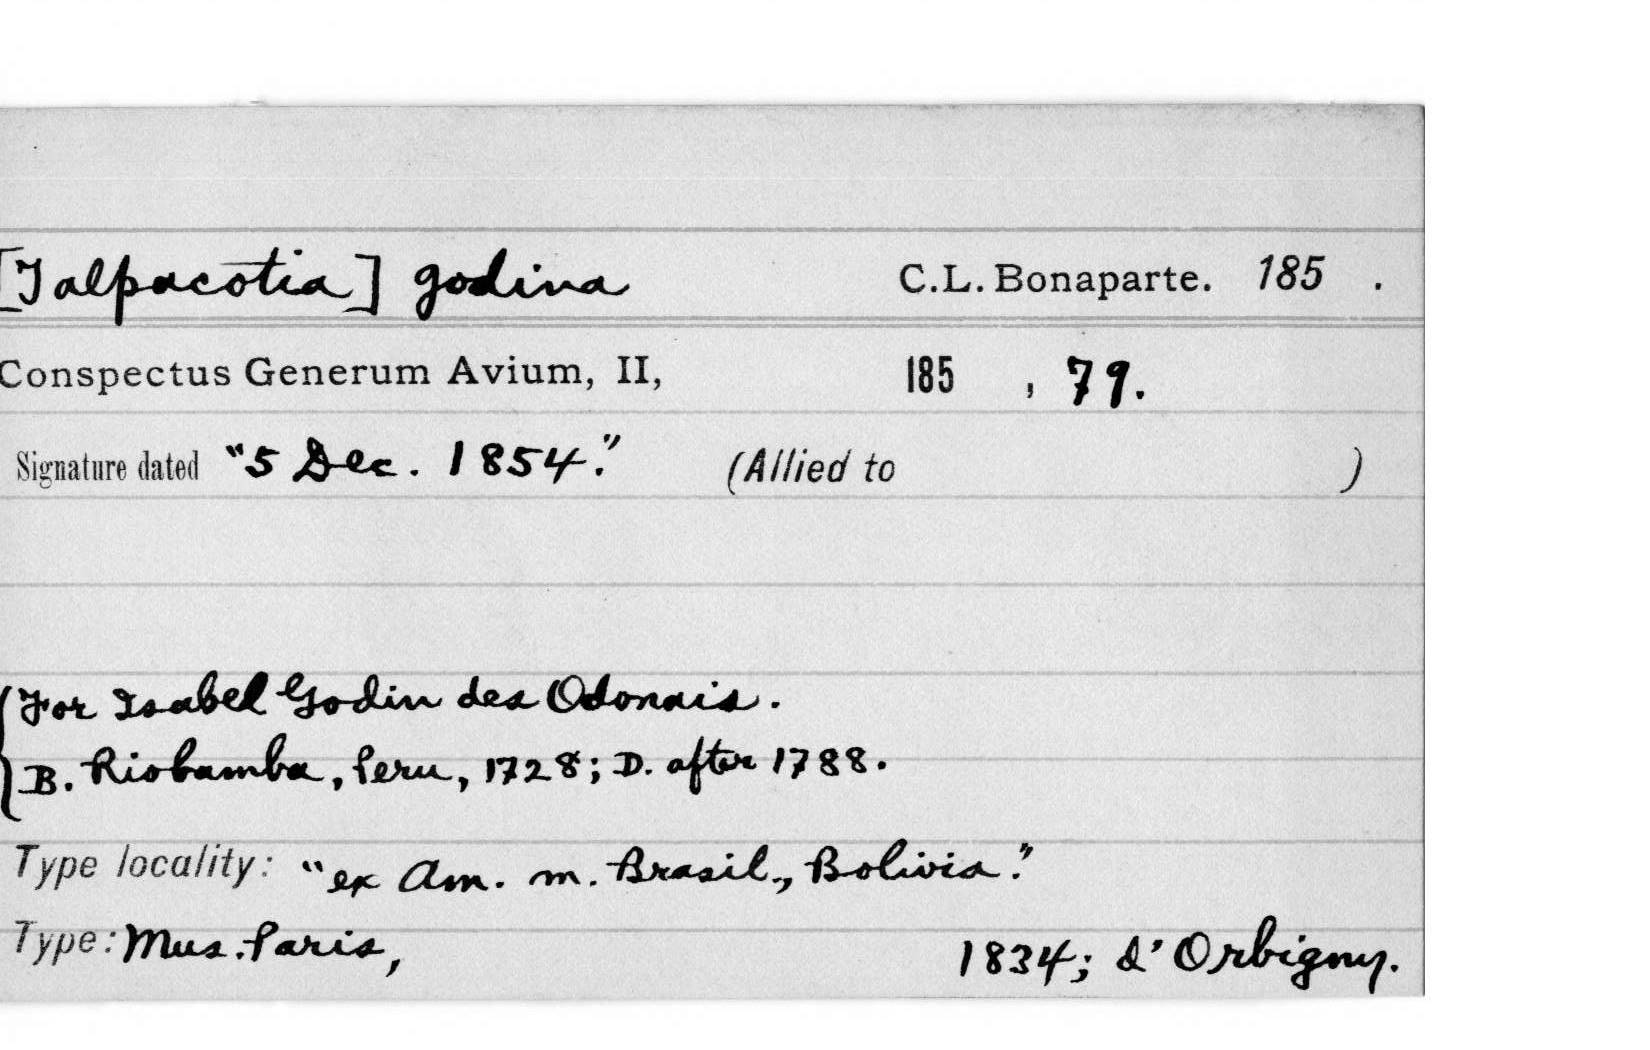 [Talpacotia] godina C.L. Bonaparte. 185 .
Conspectus Generum Avium, II, 185 , 79.
Signature dated "5 Dec. 1854." (Allied to )
For Isabel Godin des Odonais.
B. Riobamba, Peru, 1728; D. after 1788.
Type locality: "ex Am. m. Brasil., Bolivia."
Type: Mus. Paris, 1834; d'Orbigny.